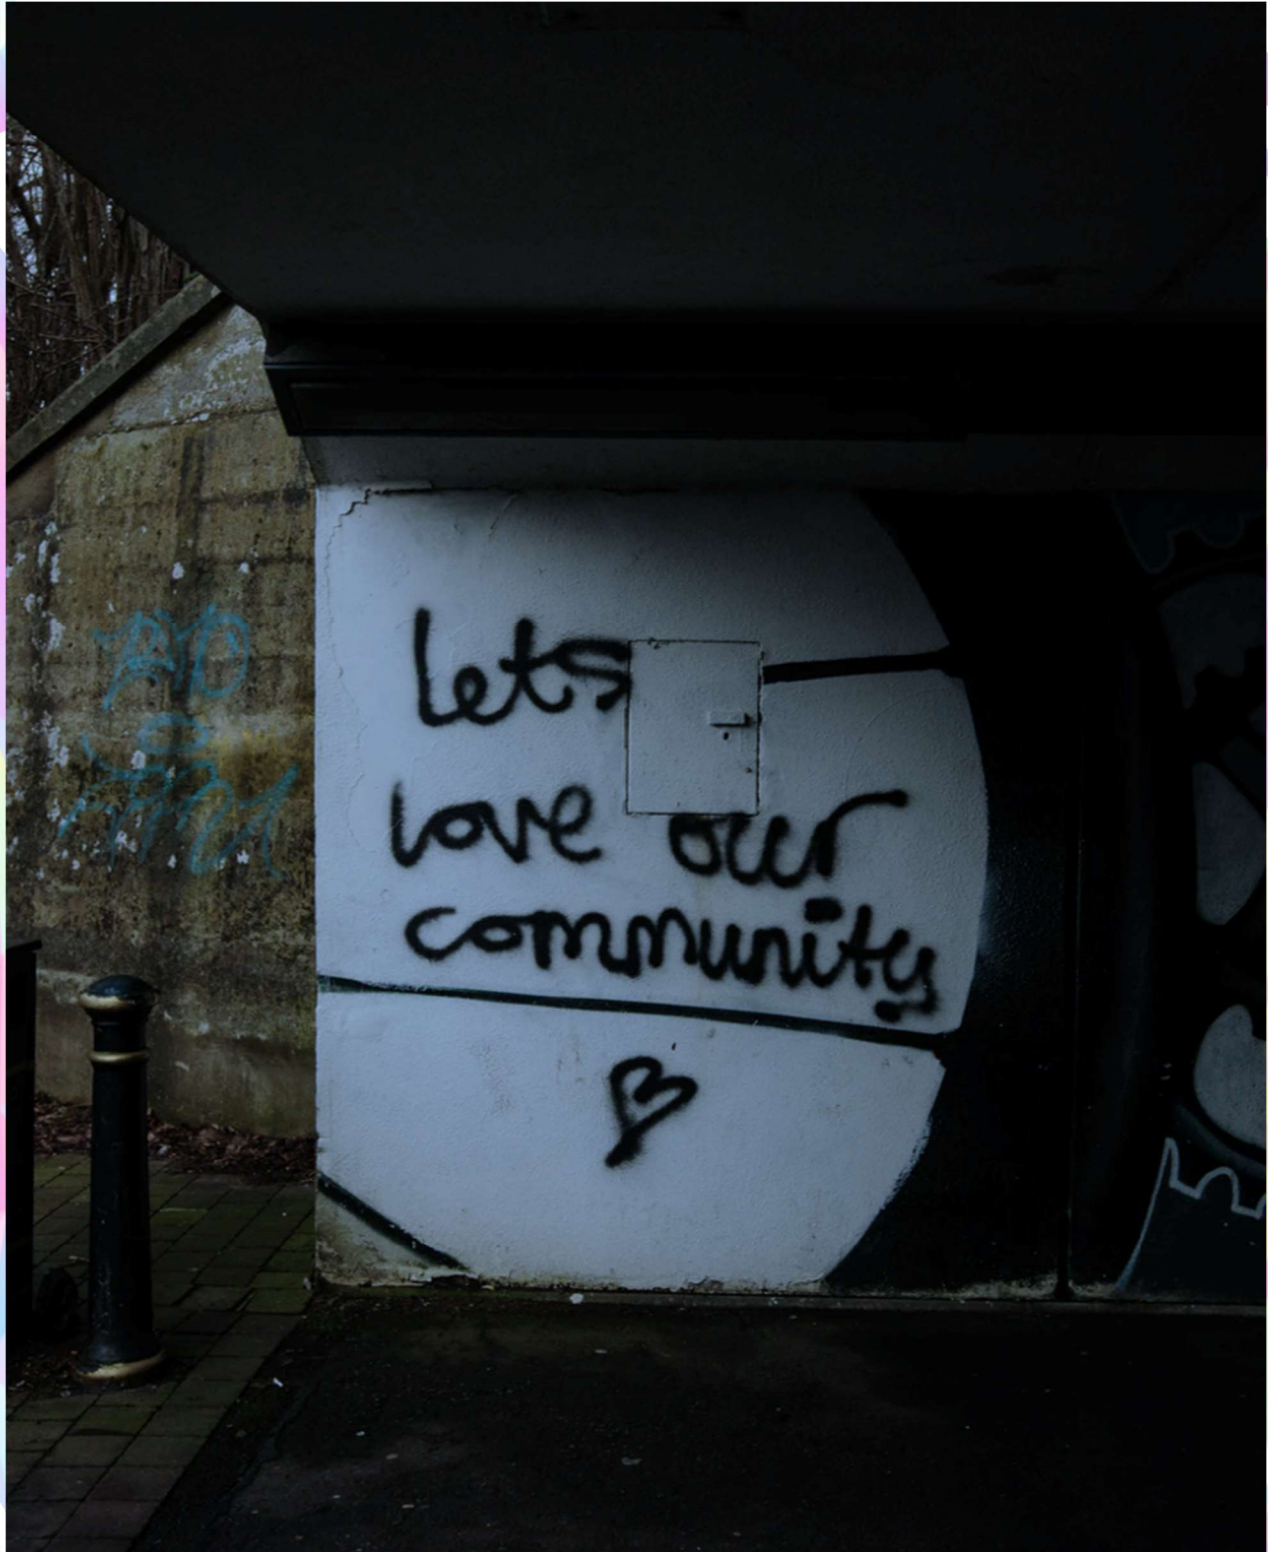 lets
love our
community